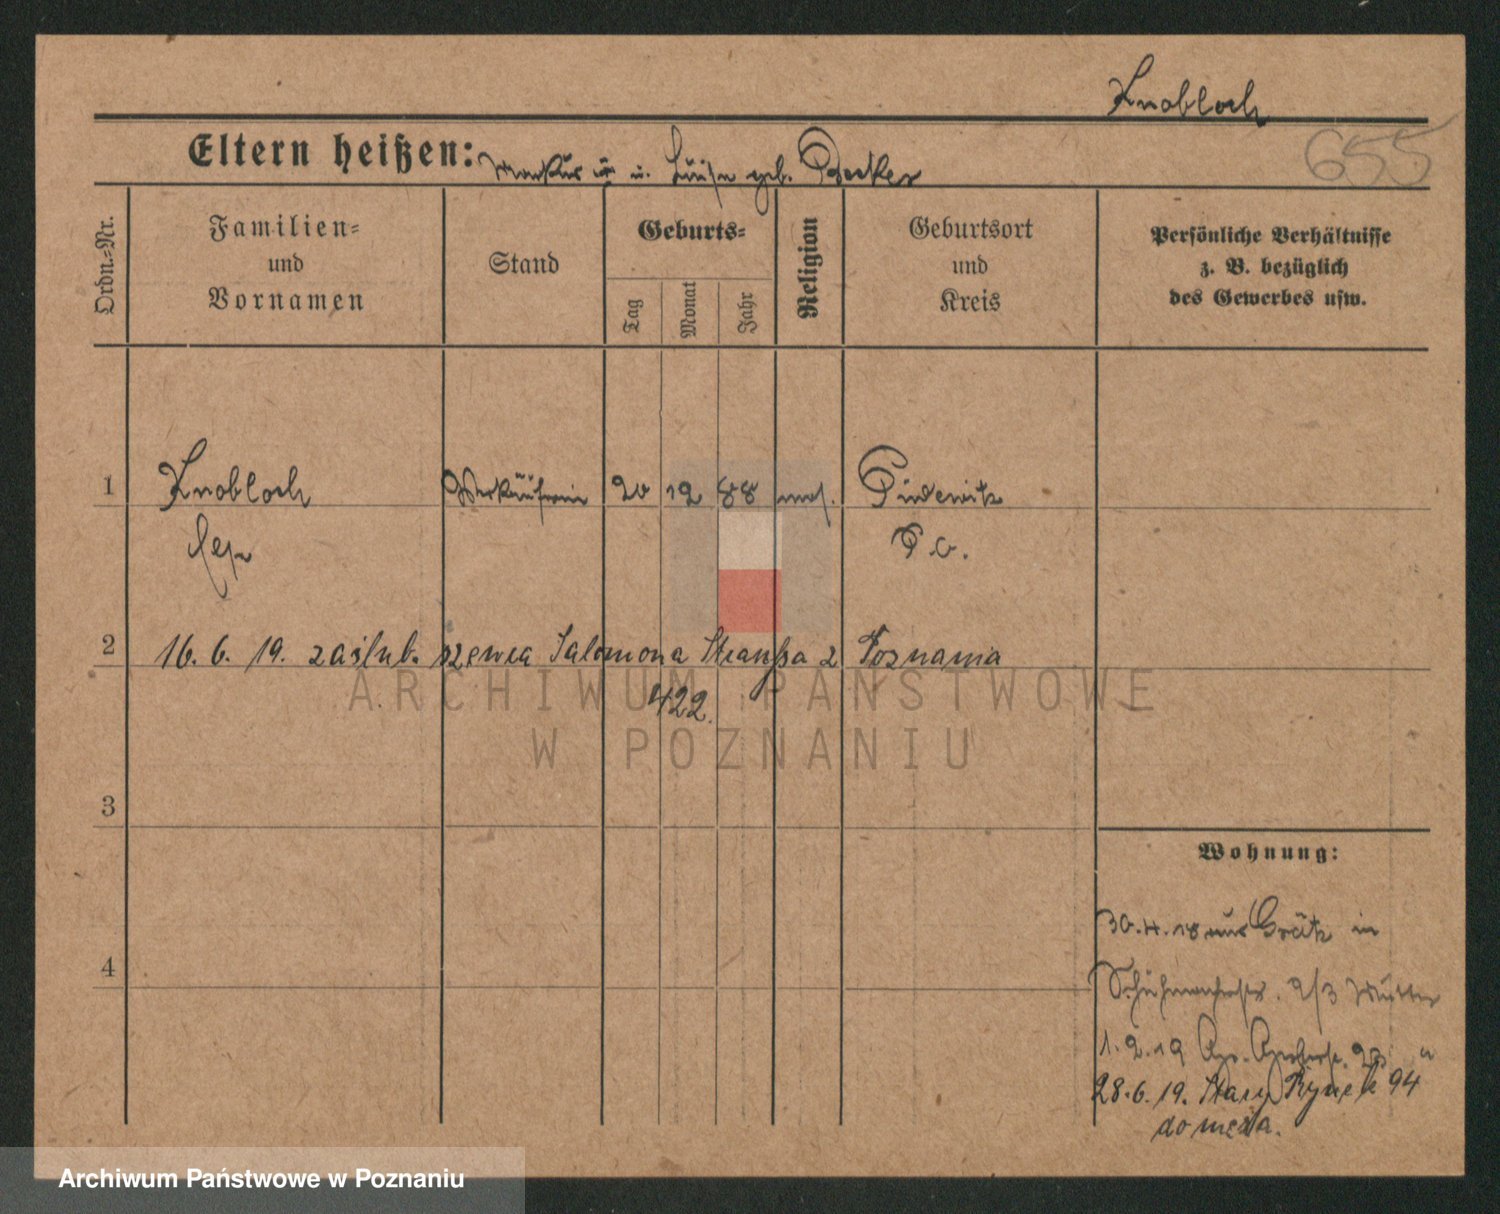 Knobloch
655
Eltern heißen: Markus u. Luise geb. Becker
Ordn.-Nr.
Familien-
und
Vornamen
Stand
Geburts-
Tag
Monat
Jahr
Religion
Geburtsort
und
Kreis
Persönliche Verhältnisse
z. B. bezüglich
des Gewerbes usw.
1 Knobloch Verkäuferin 20 12 88 mos. Pudewitz
P. O.
2 16. 6. 19. zaślub. szewca Salomona Straußa z Poznania
422.
3
4
Wohnung:
30.4.18 aus Grätz in
Schuhmacherstr. 2/3 Mutter
1.2.19
28.6.19. Stary Rynek 94
do męża.
ARCHIWUM PAŃSTWOWE
W POZNANIU
Archiwum Państwowe w Poznaniu